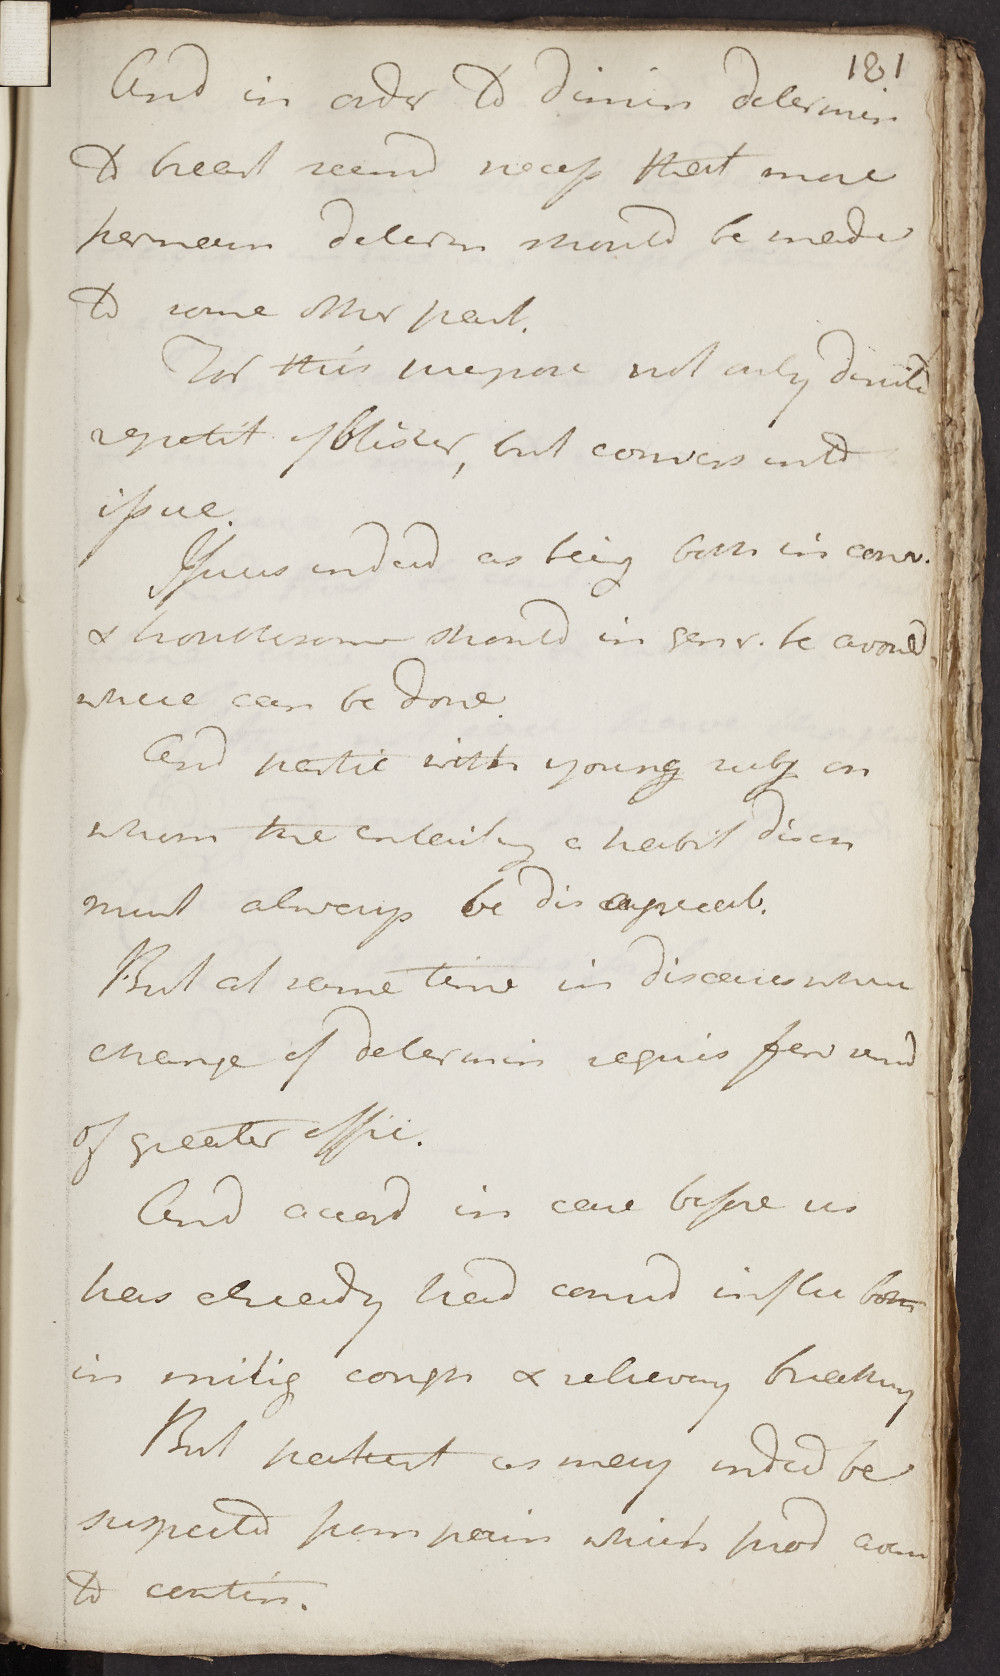 181
And in order to dimin determin
to breast seemd necess that more
permanen determ should be made
to some other part.
For this purpose not only direct
repetit of blister, but convers into
issue.
Issues indeed as being both in conv.
& troublesome should in gener. be avoid
where can be done.
And partic with young subj on
whom the entailing a habit discn
must always be disagreeab.
But at same time in diseases where
change of determin requis few seemd
of greater effic.
And accord in case before us
has already had consid influ both
in mitig cough & relieving breathing
But patient as may indeed be
suspected from pain which prod averse
to contin.